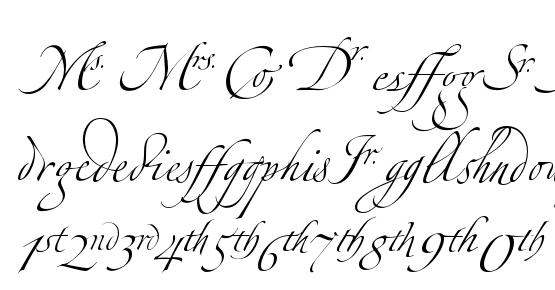 Ms. Mrs. Co Dr. es ff gg Sr.
dr ge de die es ff gg phis Jr. gg ll sh nd ou
1st 2nd 3rd 4th 5th 6th 7th 8th 9th 0th